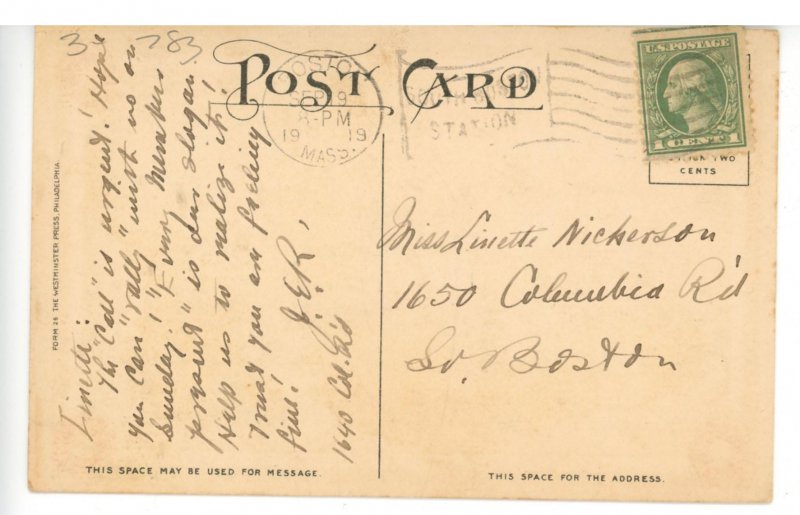 3 783
POST CARD
BOSTON
SEP 19
8-PM
19 19
MASS.
SOUTH BOSTON
STATION
U.S. POSTAGE
1 CENT 1
TWO
CENTS
Linette:
The "Call" is urgent! Hope
you can "rally" with us on
Sunday! "Every Member
present" is our slogan.
Help us to realize it!
Trust you are feeling
fine!
J.E.R.
1640 Col. R'd
Miss Linette Nickerson
1650 Columbia R'd
So. Boston
FORM 26 THE WESTMINSTER PRESS, PHILADELPHIA
THIS SPACE MAY BE USED FOR MESSAGE.
THIS SPACE FOR THE ADDRESS.